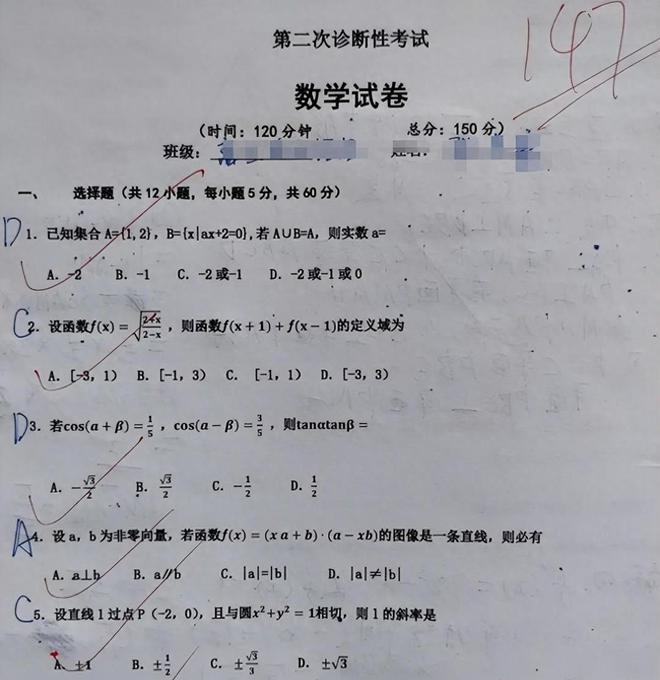 147
第二次诊断性考试
数学试卷
（时间：120 分钟 总分：150 分）
班级：
一、 选择题（共 12 小题，每小题 5 分，共 60 分）
D 1. 已知集合 A={1,2}，B={x|ax+2=0},若 A∪B=A，则实数 a=
A. -2 B. -1 C. -2 或-1 D. -2 或-1 或 0
C 2. 设函数f(x) = √(2+x)/(2−x)，则函数f(x + 1) + f(x − 1)的定义域为
A. [-3, 1) B. [-1, 3) C. [-1, 1) D. [-3, 3)
D 3. 若cos(α + β) = 1/5，cos(α − β) = 3/5，则tanαtanβ =
A. −√3/2 B. √3/2 C. −1/2 D. 1/2
A 4. 设 a，b 为非零向量，若函数f(x) = (x a + b)·(a − xb)的图像是一条直线，则必有
A. a⊥b B. a∥b C. |a|=|b| D. |a|≠|b|
C 5. 设直线 l 过点 P（-2，0），且与圆x²+y² = 1相切，则 l 的斜率是
A. ±1 B. ±1/2 C. ±√3/3 D. ±√3